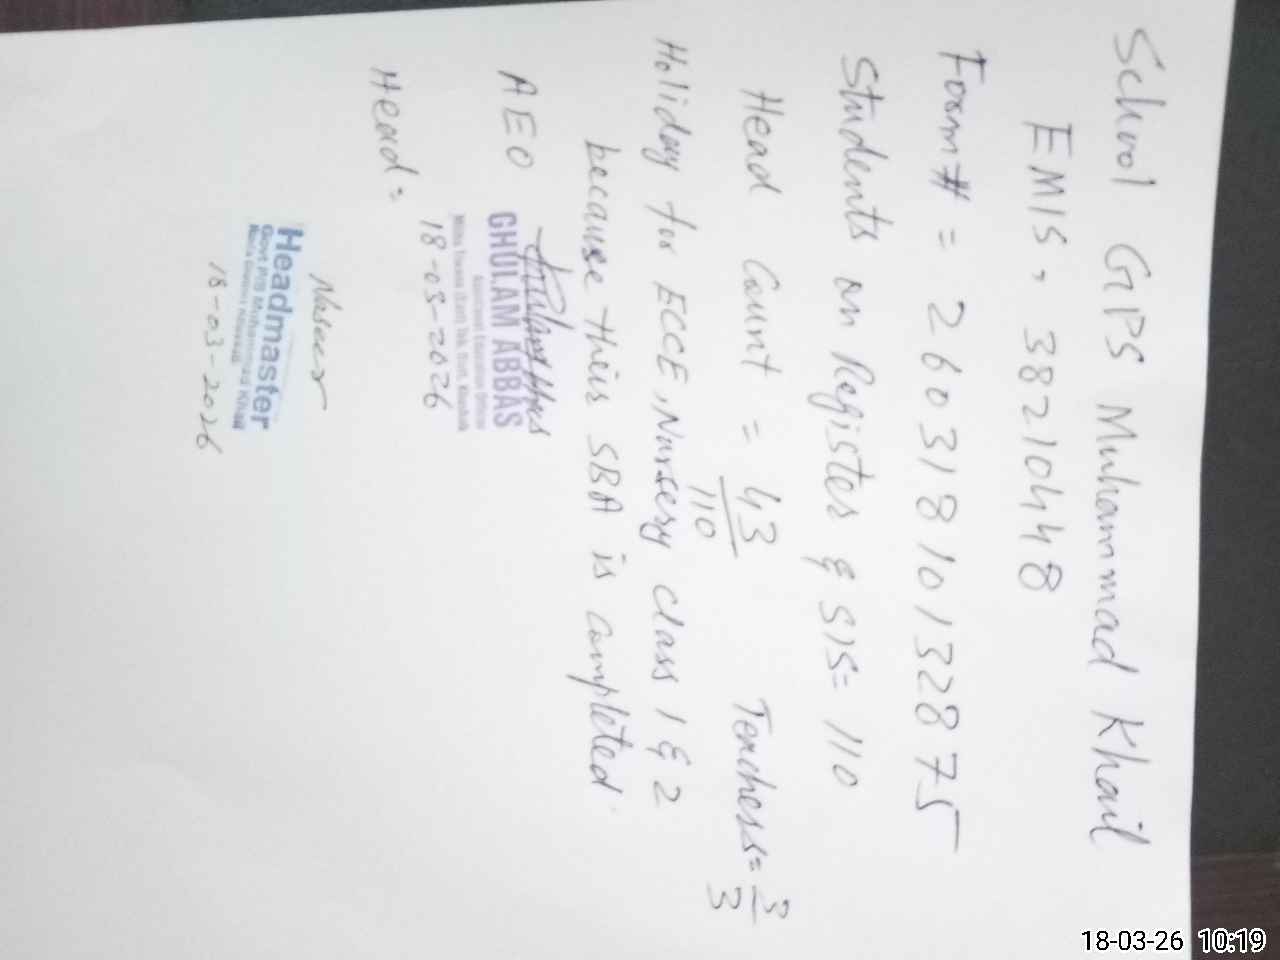 School GPS Muhammad Khail
EMIS, 38210448
Form # = 26031810132875
Students on Register & SIS= 110
Head Count = 43/110 Teachers= 3/3
Holiday for ECCE, Nursery class 1 & 2
because their SBA is completed.
AEO
GHULAM ABBAS
Assistant Education Officer
18-03-2026
Head =
Headmaster
Govt P/S Muhammad Khail
18-03-2026
18-03-26 10:19